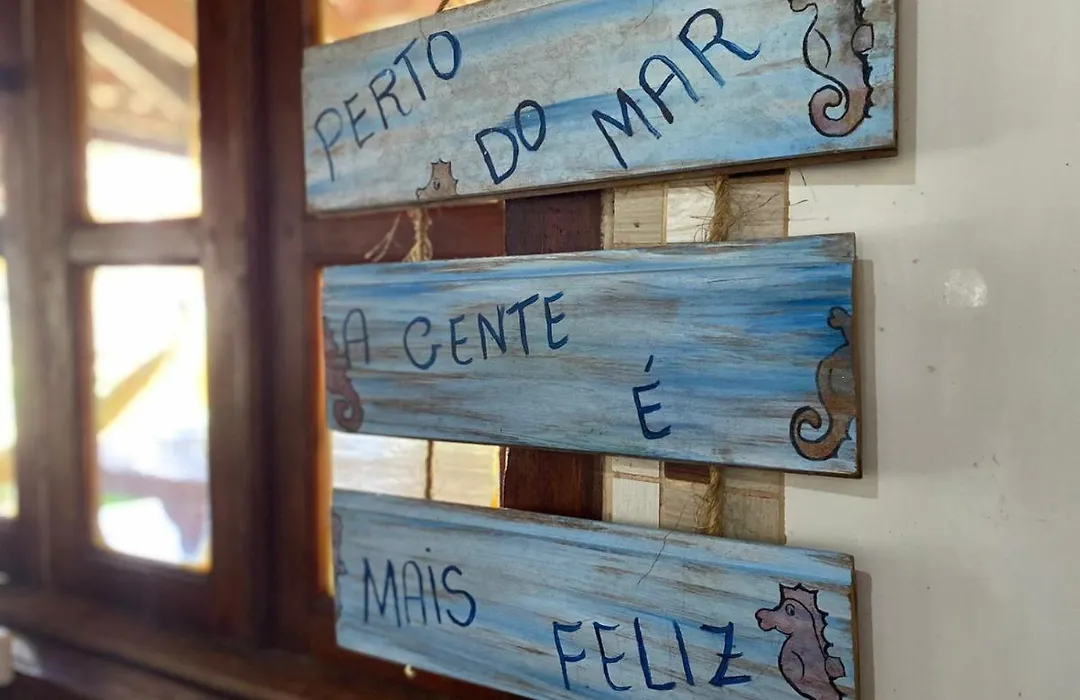 PERTO
DO MAR
A GENTE
É
MAIS
FELIZ